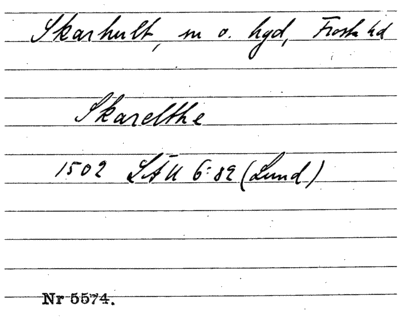 Skarhult, m o. hgd, Frosta hd
Skarelthe
1502 LÄU 6:82 (Lund)
Nr 5574.